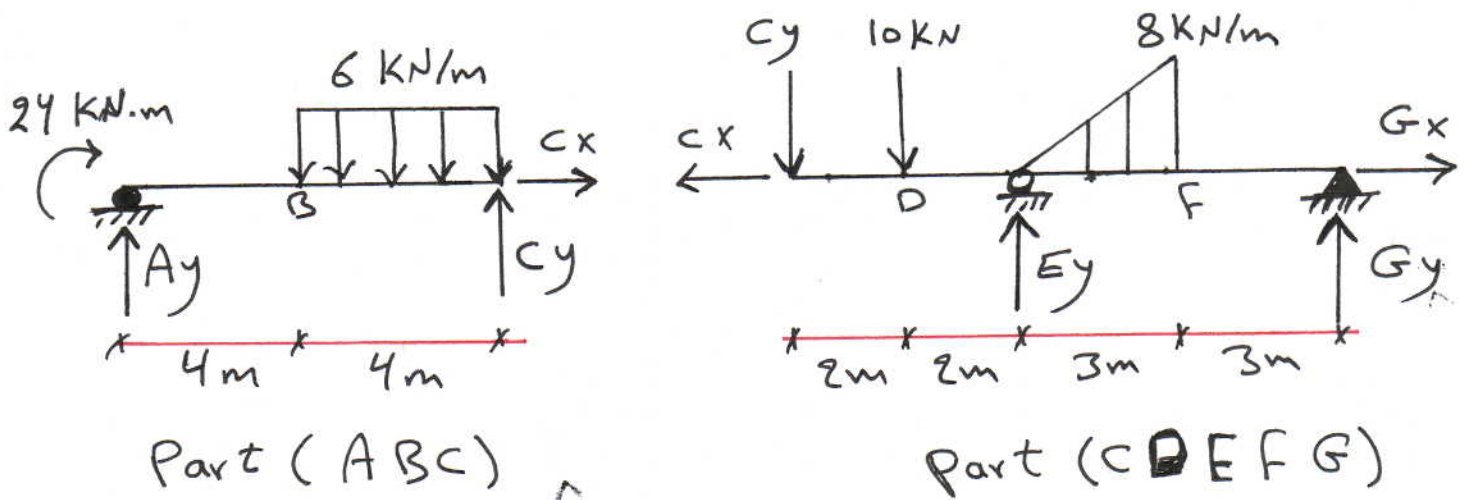 6 KN/m
24 KN.m
Cx
B
Ay
Cy
4m
4m
Part (ABC)
Cy
10KN
8KN/m
Cx
Gx
D
F
Ey
Gy
2m
2m
3m
3m
Part (CDEFG)